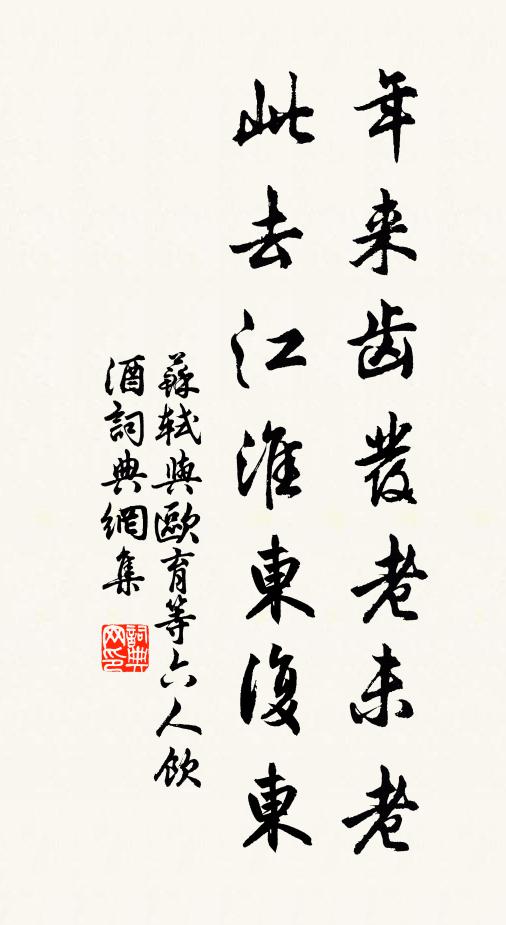 年来齿發老未老
此去江淮東復東
蘇軾與歐育等六人飲
酒詞典網集
詞典網印